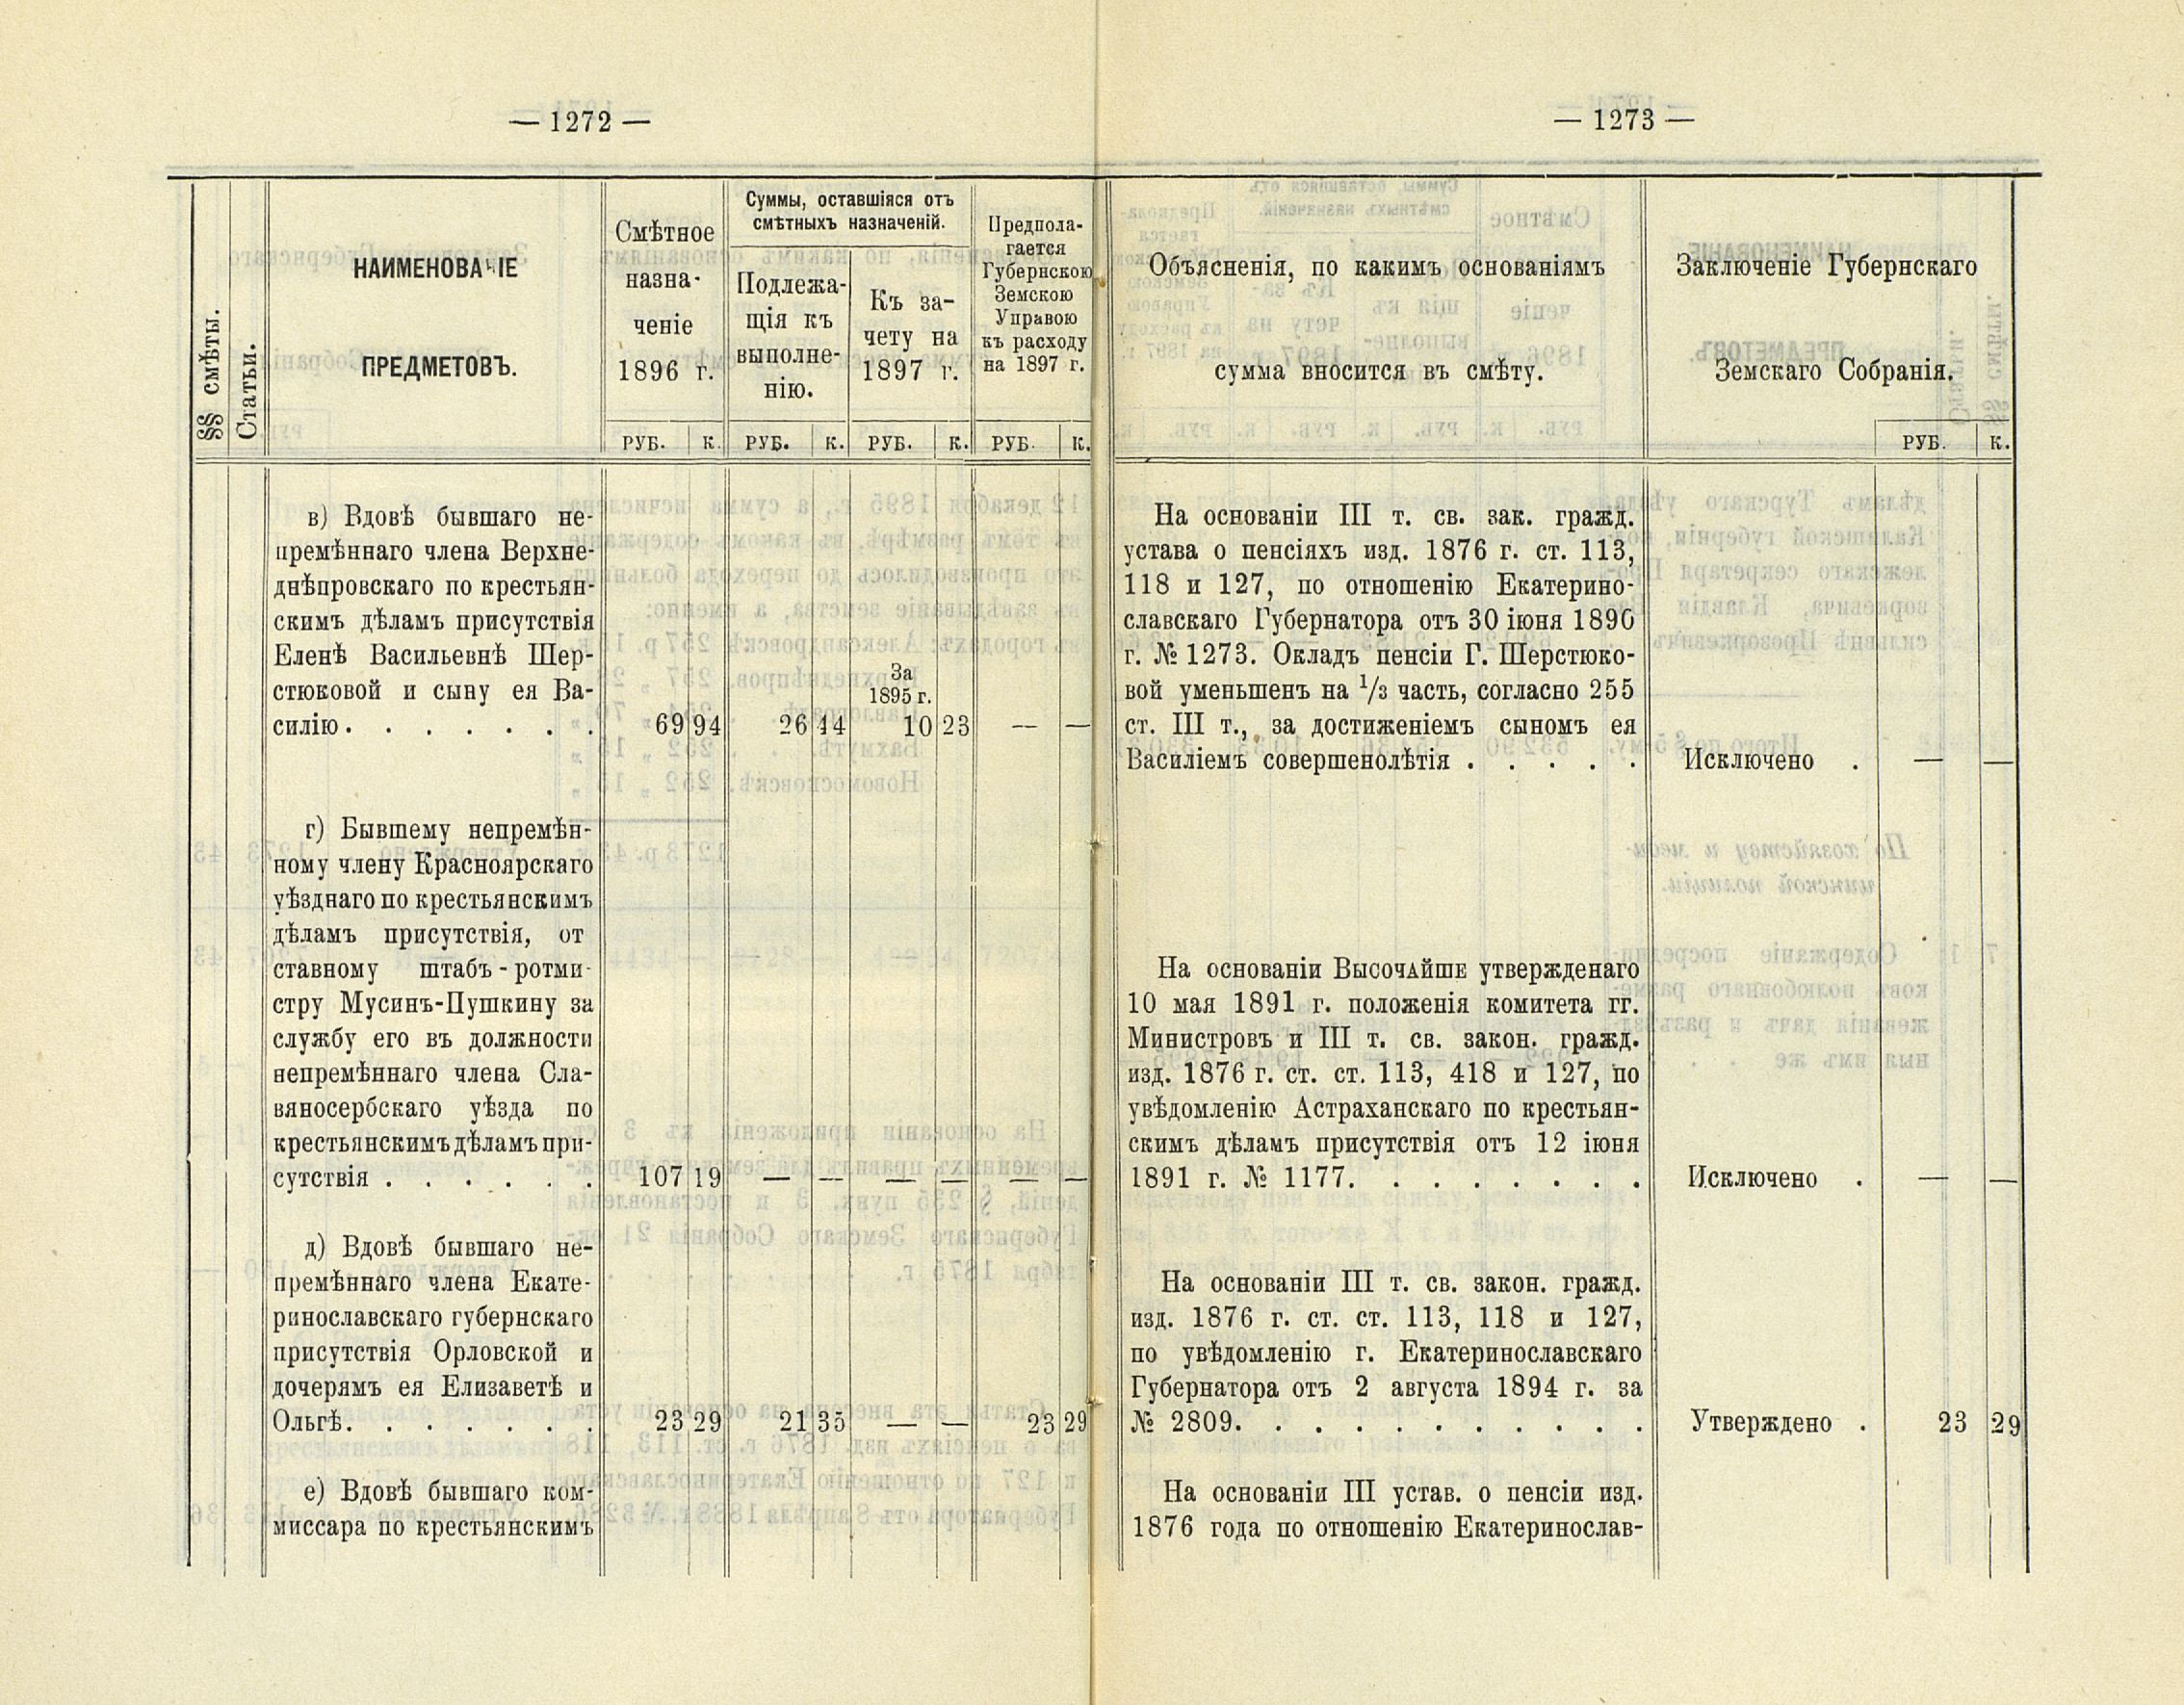 — 1272 —
§§ смѣты.
Статьи.
НАИМЕНОВАНІЕ
ПРЕДМЕТОВЪ.
Смѣтное
назна-
ченіе
1896 г.
Суммы, оставшіяся отъ
смѣтныхъ назначеній.
Подлежа-
щія къ
выполне-
нію.
Къ за-
чету на
1897 г.
Предпола-
гается
Губернскою
Земскою
Управою
къ расходу
на 1897 г.
РУБ. К. РУБ. К. РУБ. К. РУБ. К.
в) Вдовѣ бывшаго не-
премѣннаго члена Верхне-
днѣпровскаго по крестьян-
скимъ дѣламъ присутствія
Еленѣ Васильевнѣ Шер-
стюковой и сыну ея Ва-
За
1895 г.
силію . . . . . . . 69 94 26 44 10 23 — —
г) Бывшему непремѣн-
ному члену Красноярскаго
уѣзднаго по крестьянскимъ
дѣламъ присутствія, от
ставному штабъ-ротми-
стру Мусинъ-Пушкину за
службу его въ должности
непремѣннаго члена Сла-
вяносербскаго уѣзда по
крестьянскимъ дѣламъ при-
сутствія . . . . . . 107 19 — — — — — —
д) Вдовѣ бывшаго не-
премѣннаго члена Екате-
ринославскаго губернскаго
присутствія Орловской и
дочерямъ ея Елизаветѣ и
Ольгѣ. . . . . . . 23 29 21 35 — — 23 29
е) Вдовѣ бывшаго ком-
миссара по крестьянскимъ
— 1273 —
Объясненія, по какимъ основаніямъ
сумма вносится въ смѣту.
Заключеніе Губернскаго
Земскаго Собранія.
РУБ. К.
На основаніи III т. св. зак. гражд.
устава о пенсіяхъ изд. 1876 г. ст. 113,
118 и 127, по отношенію Екатерино-
славскаго Губернатора отъ 30 іюня 1890
г. № 1273. Окладъ пенсіи Г. Шерстюко-
вой уменьшенъ на 1/3 часть, согласно 255
ст. III т., за достиженіемъ сыномъ ея
Василіемъ совершенолѣтія . . . . . Исключено . — —
На основаніи Высочайше утвержденаго
10 мая 1891 г. положенія комитета гг.
Министровъ и III т. св. закон. гражд.
изд. 1876 г. ст. ст. 113, 418 и 127, по
увѣдомленію Астраханскаго по крестьян-
скимъ дѣламъ присутствія отъ 12 іюня
1891 г. № 1177. . . . . . . . Исключено . — —
На основаніи III т. св. закон. гражд.
изд. 1876 г. ст. ст. 113, 118 и 127,
по увѣдомленію г. Екатеринославскаго
Губернатора отъ 2 августа 1894 г. за
№ 2809. . . . . . . . . . . Утверждено . 23 29
На основаніи III устав. о пенсіи изд.
1876 года по отношенію Екатеринослав-